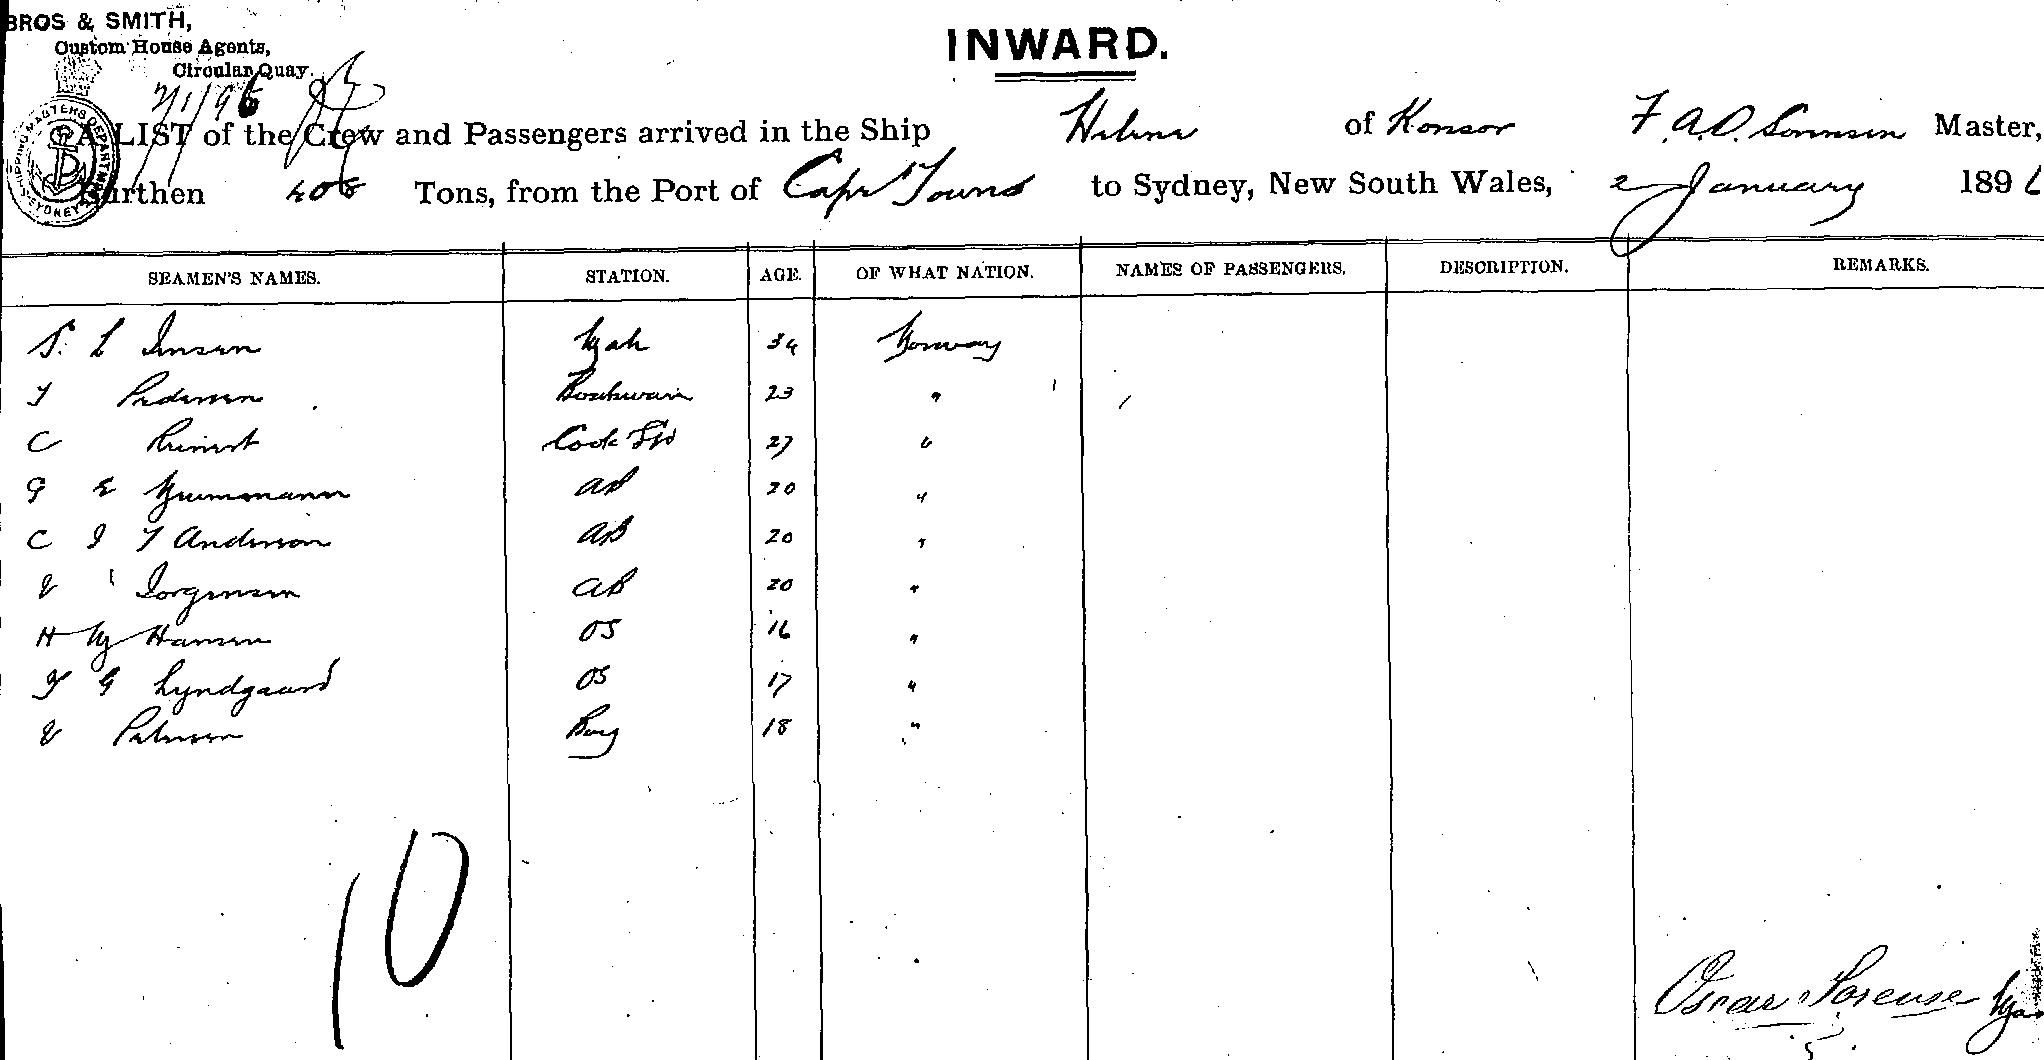 BROS & SMITH,
Custom House Agents,
Circular Quay.
7/1/96
SHIPPING MASTERS DEPARTMENT SYDNEY
INWARD.
A LIST of the Crew and Passengers arrived in the Ship Helene of F. A. O. Sorensen Master,
Burthen 408 Tons, from the Port of Cape Town to Sydney, New South Wales, 2 January 1896
SEAMEN'S NAMES. STATION. AGE. OF WHAT NATION. NAMES OF PASSENGERS. DESCRIPTION. REMARKS.
S. L Jensen Mate 34 Norway
T Pedersen Boatswain 23 "
C Reinert Cook 27 "
G E AB 20 "
C J T Anderson AB 20 "
V Jorgensen AB 20 "
H M Hansen OS 16 "
G Lyndgaard OS 17 "
V Petersen Boy 18 "
10
Oscar Sorense